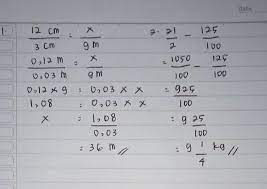 date
1. 12 cm / 3 cm = x / 9 m
0,12 m / 0,03 m = x / 9 m
0,12 x 9 = 0,03 x x
1,08 = 0,03 x x
x = 1,08 / 0,03
= 36 m //
2. 21 / 2 - 125 / 100
= 1050 / 100 - 125 / 100
= 925 / 100
= 9 25 / 100
= 9 1 / 4 kg //